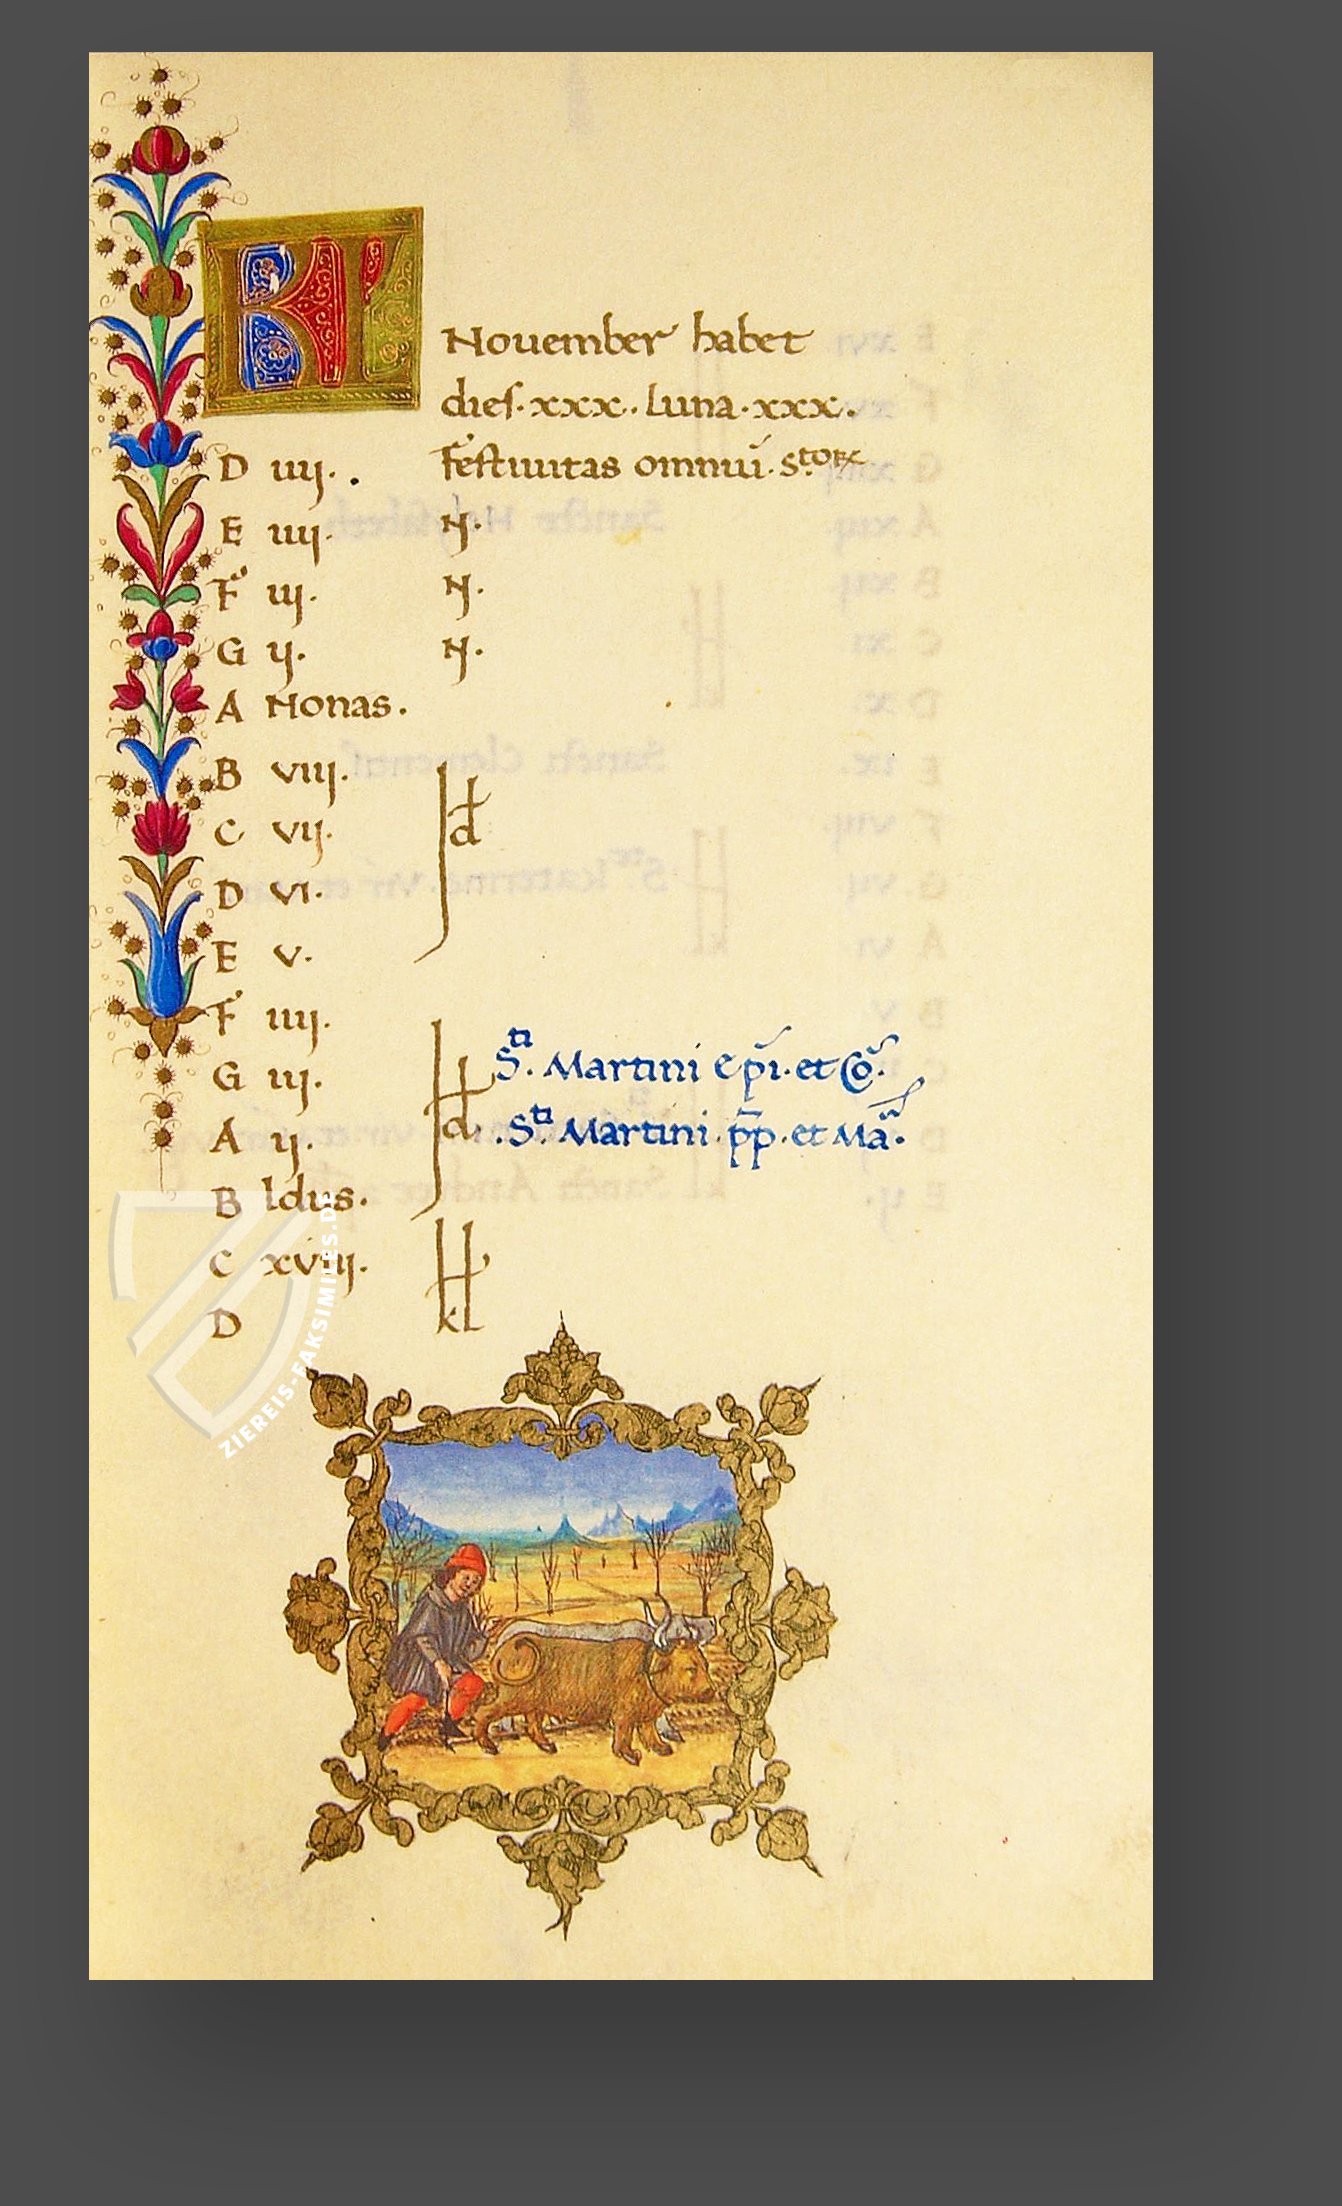 KL
November habet
dies·xxx··Luna·xxx·
D iiij· Festiuitas omniũ·Stoꝝ
E iiij· N·
F iij· N·
G ij· N·
A Nonas·
B viij·
C vij· Id
D vi·
E v·
F iiij·
G iij· Sti· Martini epĩ·et Cõ·
A ij· Id ·Sti· Martini·pp·et Mã·
B Idus·
C xviij·
D kL
ZIEREIS-FAKSIMILES.DE